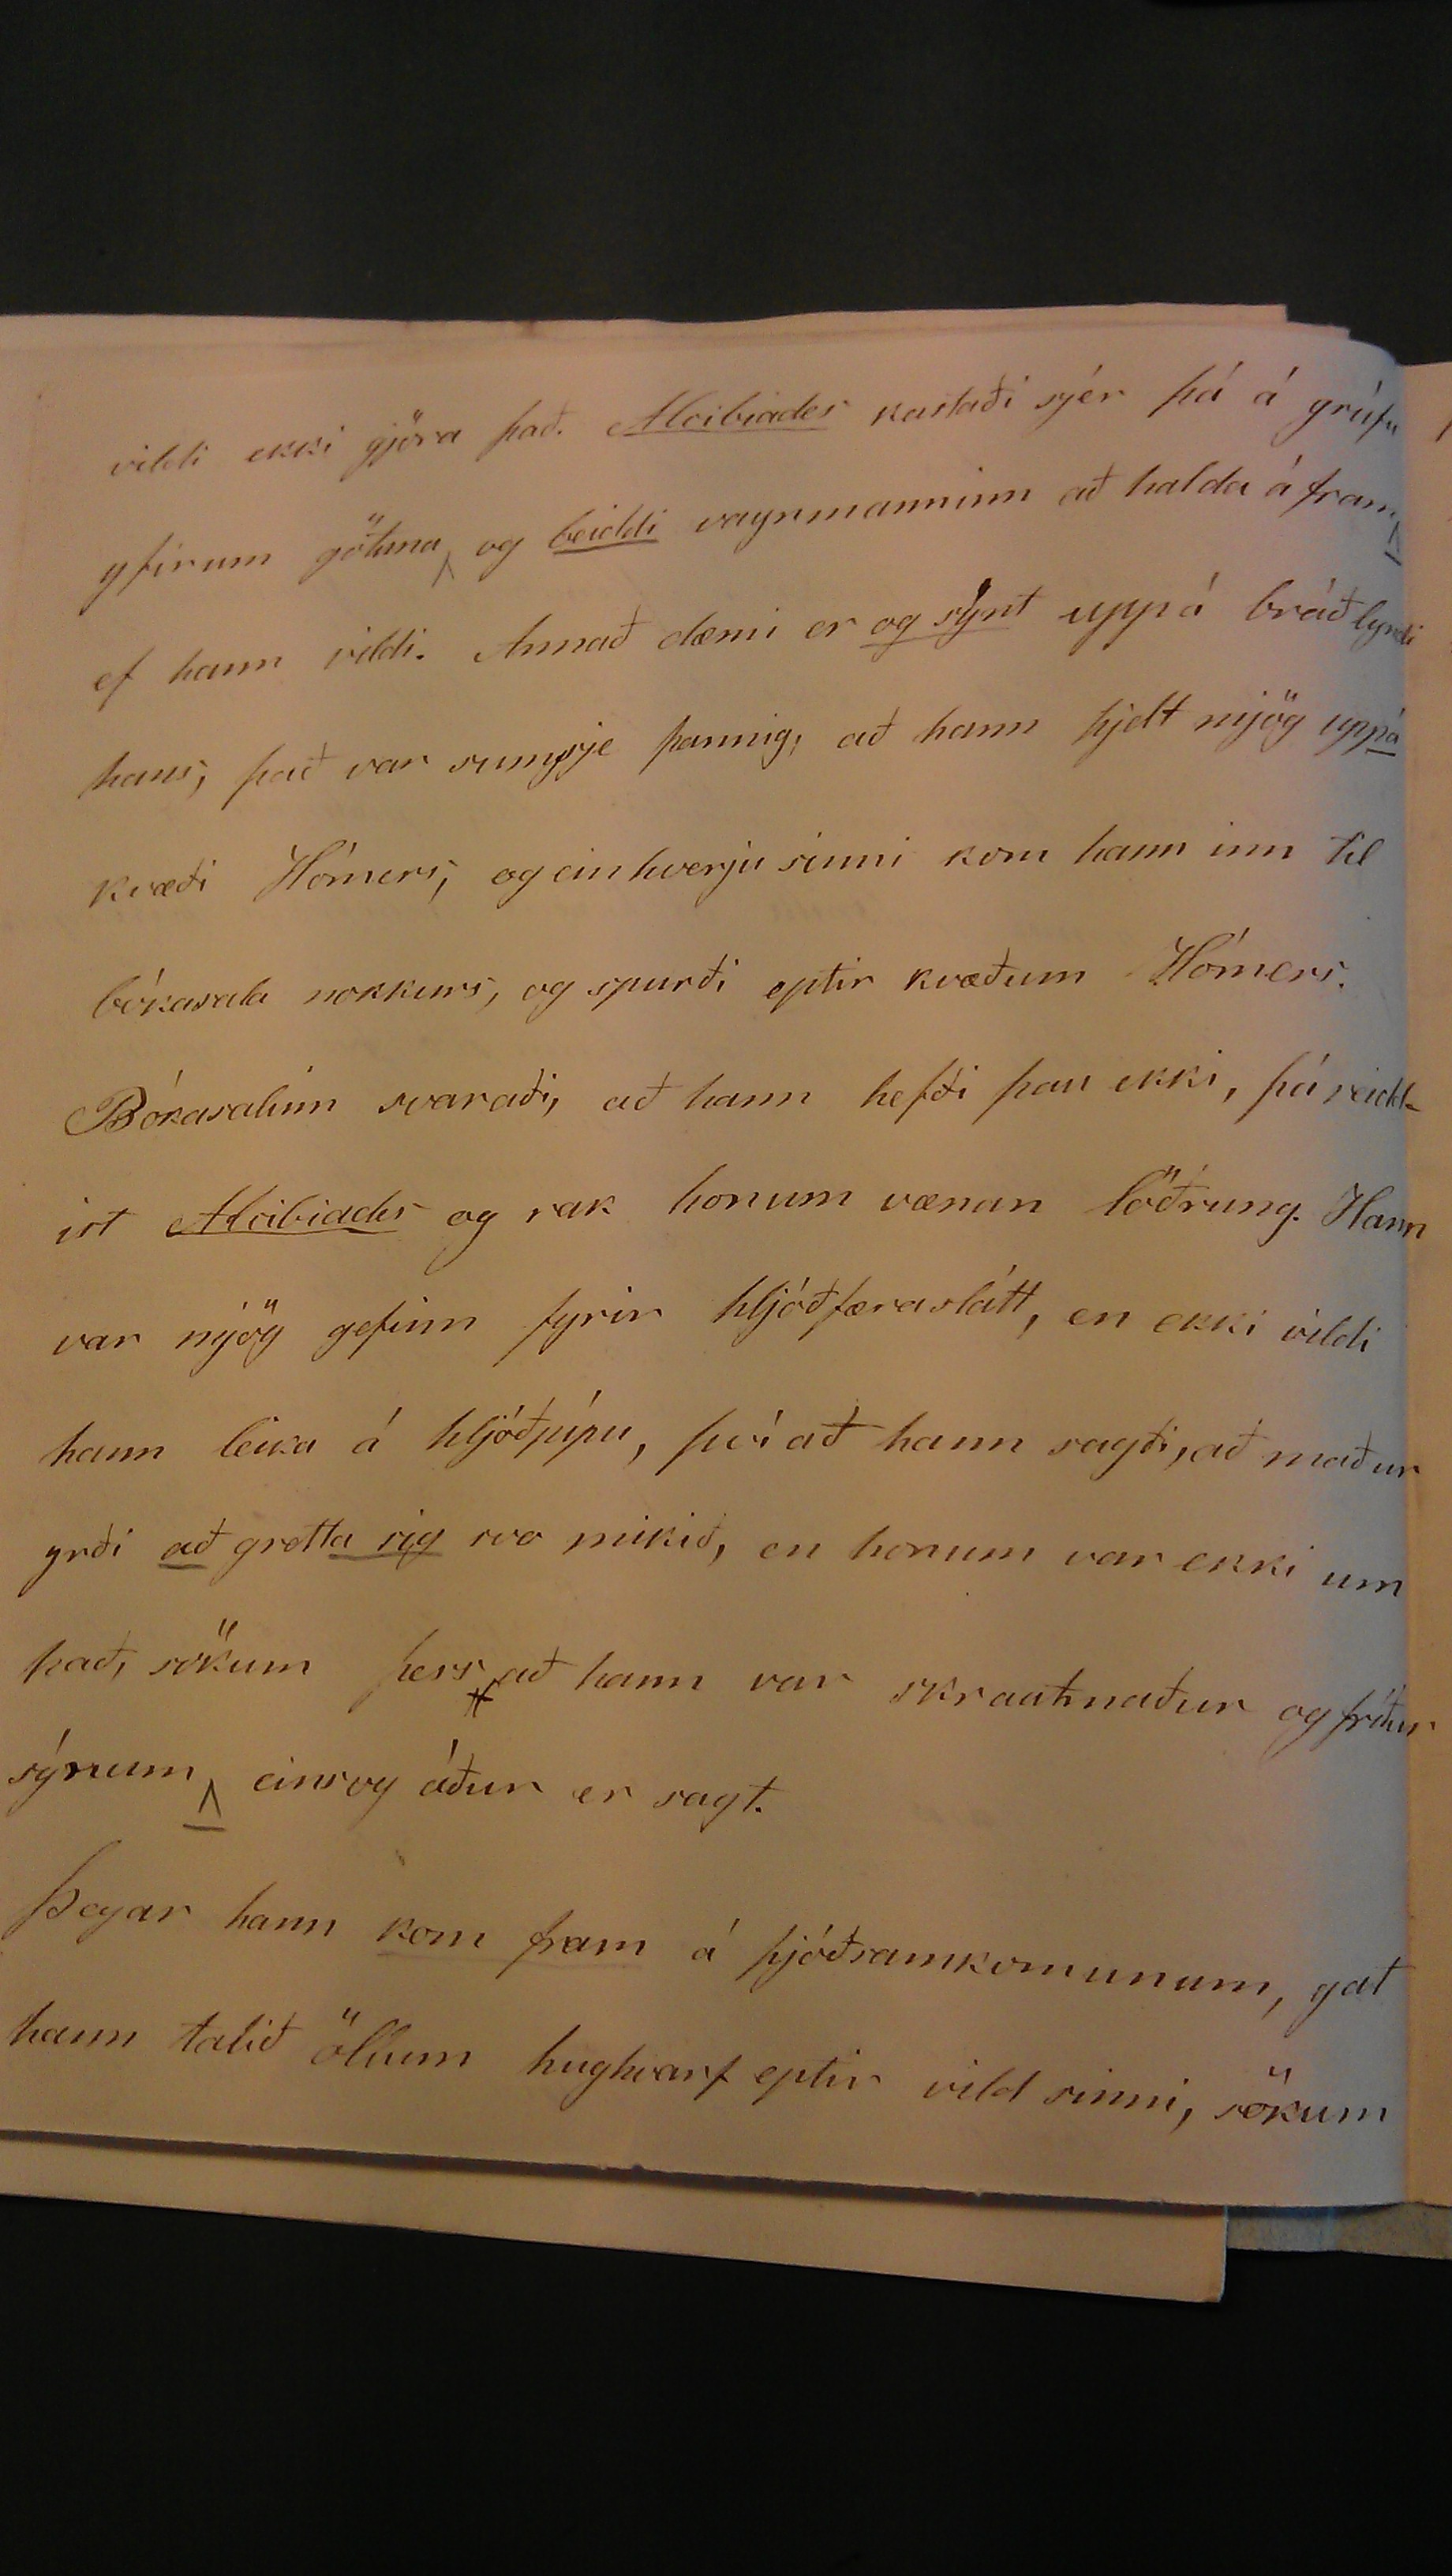 vildi ekki gjöra það. Alcibiades kastaði sjér þá á grúfu
yfirum götuna, og beiddi vagnmanninn að halda áfram,
ef hann vildi. Annað dæmi er og sýnt uppá bráðlyndi
hans; það var sumsje þannig, að hann hjelt mjög uppá
kvæði Hómers; og einhverju sinni kom hann inn til
bókasala nokkurs, og spurði eptir kvæðum Hómers.
Bókasalinn svaraði, að hann hefði þau ekki, þá reidd-
ist Alcibiades og rak honum vænan löðrung. Hann
var mjög gefinn fyrir hljóðfæraslátt, en ekki vildi
hann leika á hljóðpípu, því að hann sagði, að maður
yrði að gretta sig svo mikið, en honum var ekki um
það, sökum þess að hann var skrautmaður og fríður
sýnum, einsog áður er sagt.
Þegar hann kom fram á þjóðsamkomunum, gat
hann talið öllum hughvarf eptir vild sinni, sökum